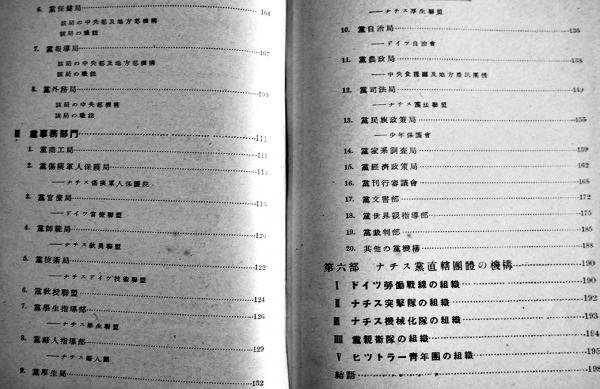 6. 黨保健局 104
該局の中央部及地方部機構
該局の職誌
7. 黨報導局 107
該局の中央部及地方部機構
該局の職誌
8. 黨外務局
該局の中央部機構
該局の職誌
黨事務部門 111
1. 黨商工局
2. 黨傷痍軍人保護局
——ナチス傷痍軍人保護院
3. 黨官僚局 116
——ドイツ官僚聯盟
4. 黨師範局 120
——ナチス敎員聯盟
5. 黨技術局 122
——ナチスドイツ技術聯盟
6. 黨敎授聯盟 124
7. 黨學生指導部 126
——ナチス學生聯盟
8. 黨婦人指導部 129
——ナチス婦人團
9. 黨厚生局 132
——ナチス厚生聯盟
10. 黨自治局
——ドイツ自治會
11. 黨農政局 138
12. 黨司法局
——ナチス護法聯盟
13. 黨民族政策局 155
——少年保護會
14. 黨家系調査局 159
15. 黨經濟政策局 162
16. 黨刊行審議會 168
17. 黨文書部 172
18. 黨世界觀指導部 175
19. 黨裁判部 185
20. 其他の黨機構 188
第六部 ナチス黨直轄團體の機構 190
Ⅰ ドイツ勞働戰線の組織 190
Ⅱ ナチス突擊隊の組織 192
Ⅲ ナチス機械化隊の組織 193
Ⅲ 黨親衞隊の組織 194
Ⅴ ヒツトラー靑年團の組織 195
結語 198